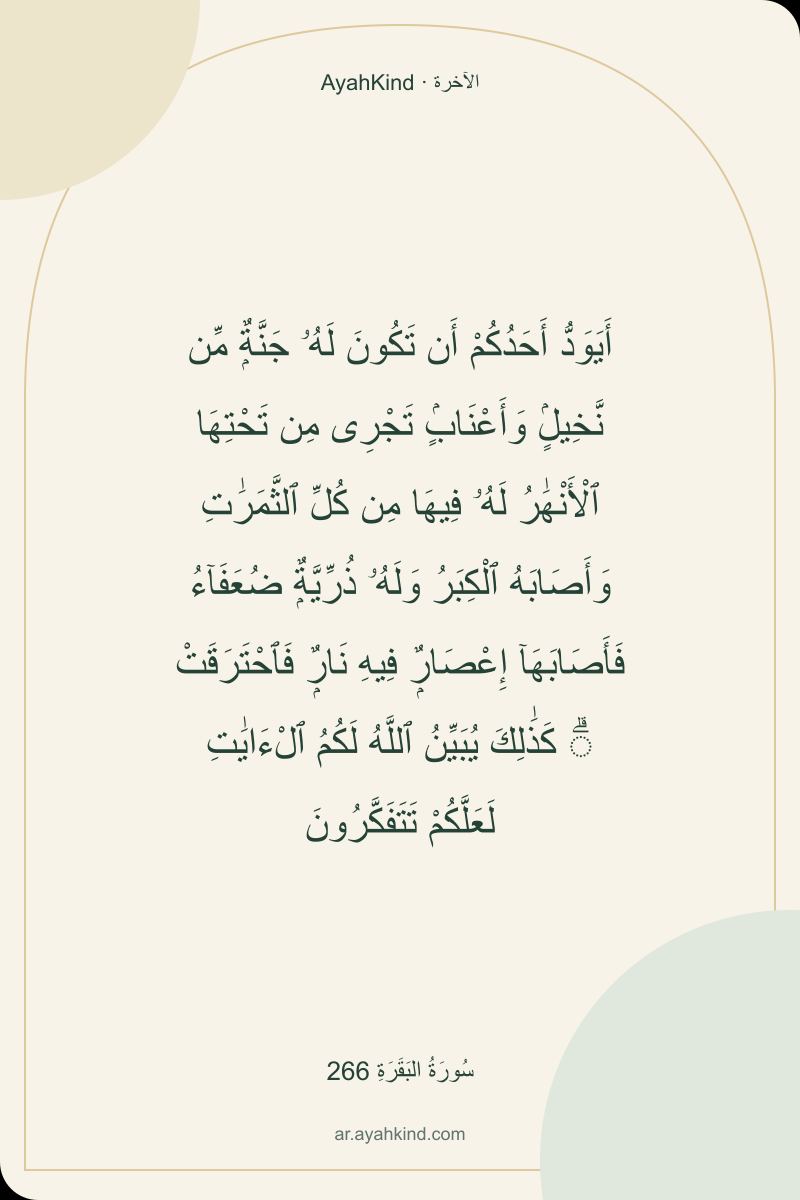 AyahKind · الآخرة
أَيَوَدُّ أَحَدُكُمْ أَن تَكُونَ لَهُۥ جَنَّةٌۭ مِّن
نَّخِيلٍۢ وَأَعْنَابٍۢ تَجْرِى مِن تَحْتِهَا
ٱلْأَنْهَٰرُ لَهُۥ فِيهَا مِن كُلِّ ٱلثَّمَرَٰتِ
وَأَصَابَهُ ٱلْكِبَرُ وَلَهُۥ ذُرِّيَّةٌۭ ضُعَفَآءُ
فَأَصَابَهَآ إِعْصَارٌۭ فِيهِ نَارٌۭ فَٱحْتَرَقَتْ
ۗ كَذَٰلِكَ يُبَيِّنُ ٱللَّهُ لَكُمُ ٱلْءَايَٰتِ
لَعَلَّكُمْ تَتَفَكَّرُونَ
سُورَةُ البَقَرَةِ 266
ar.ayahkind.com